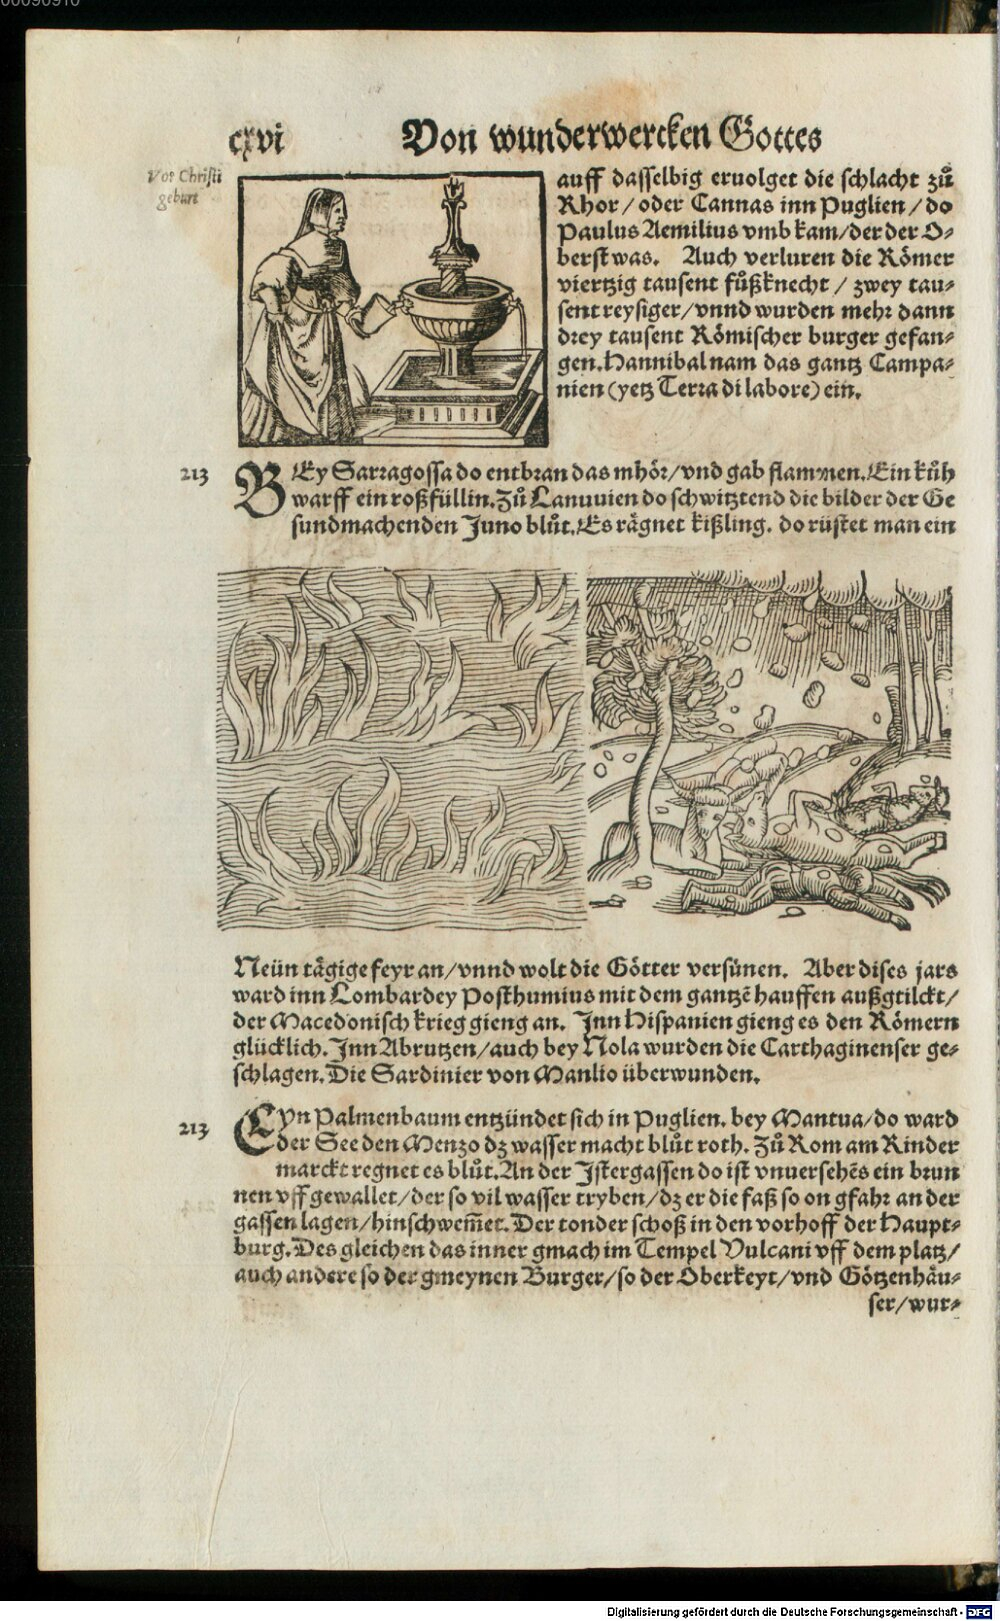 cxvi Von wunderwercken Gottes
Vor Christi
geburt
auff dasselbig eruolget die schlacht zů
Rhor / oder Cannas inn Puglien / do
Paulus Aemilius vmb kam / der der O⸗
berst was. Auch verluren die Römer
viertzig tausent fůßknecht / zwey tau⸗
sent reysiger / vnnd wurden mehr dann
drey tausent Römischer burger gefan⸗
gen. Hannibal nam das gantz Campa⸗
nien (yetz Terra di labore) ein.
213 BEy Sarragossa do entbran das mhör / vnd gab flammen. Ein kůh
warff ein roßfüllin. Zů Lanuuien do schwitztend die bilder der Ge
sundmachenden Juno blůt. Es rägnet kißling. do rüstet man ein
Neün tägige feyr an / vnnd wolt die Götter versünen. Aber dises jars
ward inn Lombardey Posthumius mit dem gantzē hauffen außgtilckt /
der Macedonisch krieg gieng an. Inn Hispanien gieng es den Römern
glücklich. Inn Abrutzen / auch bey Nola wurden die Carthaginenser ge⸗
schlagen. Die Sardinier von Manlio überwunden.
213 Eyn Palmenbaum entzündet sich in Puglien. bey Mantua / do ward
der See den Menzo dz wasser macht blůt roth. Zů Rom am Rinder
marckt regnet es blůt. An der Istergassen do ist vnuersehēs ein brun
nen vff gewallet / der so vil wasser tryben / dz er die faß so on gfahr an der
gassen lagen / hinschwem̃et. Der tonder schoß in den vorhoff der Haupt⸗
burg. Des gleichen das inner gmach im Tempel Vulcani vff dem platz /
auch andere so der gmeynen Burger / so der Oberkeyt / vnd Götzenhäu⸗
ser / wur⸗
Digitalisierung gefördert durch die Deutsche Forschungsgemeinschaft - DFG